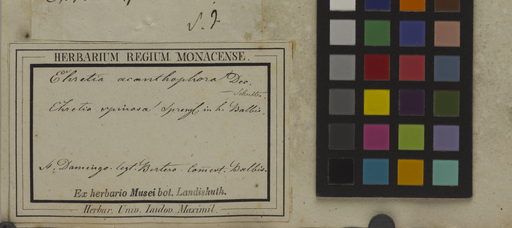 S. J.
HERBARIUM REGIUM MONACENSE.
Ehretia acanthophora Dec.
Schultes
Ehretia spinosa Spreng. in h. Balbis.
St. Domingo. legt. Bertero. comm. Balbis.
Ex herbario Musei bot. Landishuth.
Herbar. Univ. Ludov. Maximil.